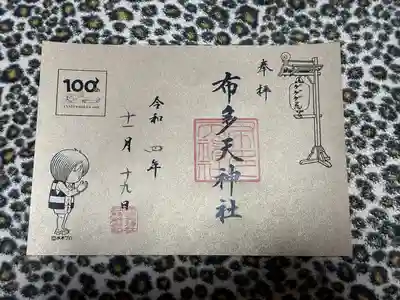 奉拝
布多天神社
令和四年
十一月十九日
100th
©水木プロ